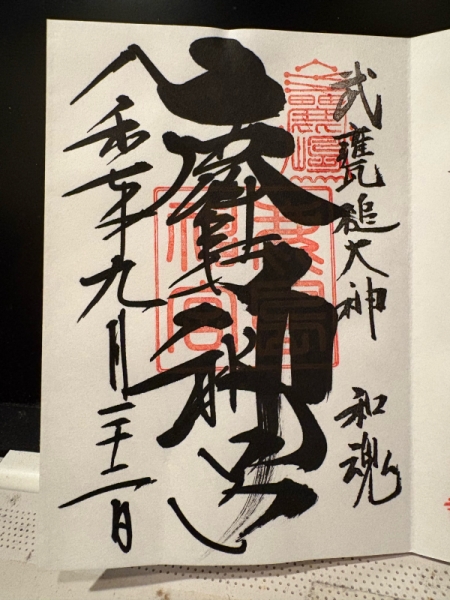 武甕槌大神 和魂
鹿島神宮
令和七年九月二十二日